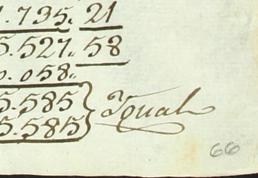 .735. 21
5.527. 58
0.058.
5.585
5.585 } Igual
66